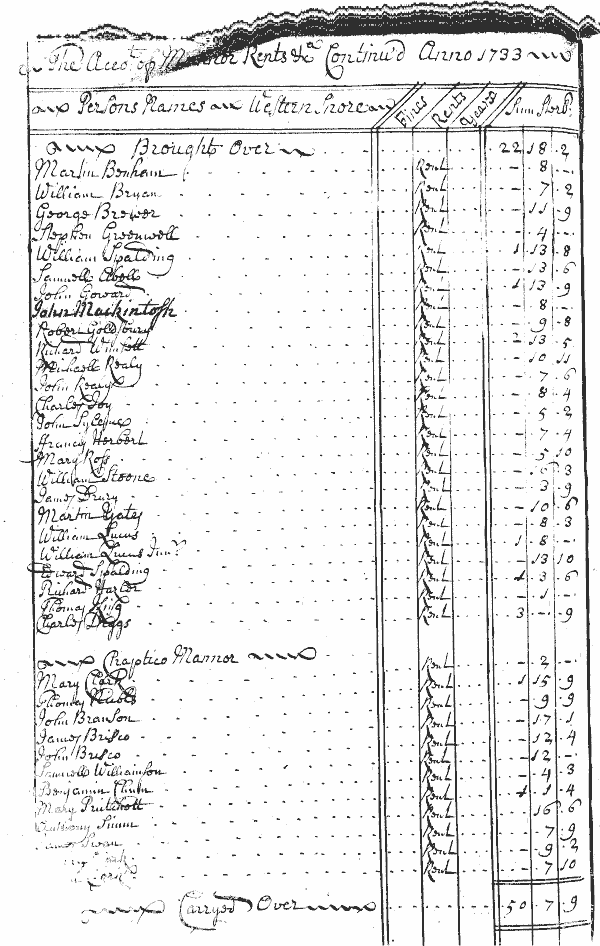 The Accot. of Mannor Rents &ca Continu'd Anno 1733
Persons Names Western Shore Fines Rents Years Sum Sterl.
Brought Over 22 18 2
Martin Benham Rent - 8 -
William Bryan Rent - 7 2
George Brewer Rent - 11 9
Stephen Greenwell Rent - 4 -
William Spalding Rent 1 13 8
Samuell Abell Rent - 13 6
John Goward Rent 1 13 9
John Mackintosh Rent - 8 -
Robert Goldsbury Rent - 9 8
Richard Winsett Rent 2 13 5
Michaell Realy Rent - 10 11
John Reavy Rent - 7 6
Charles Joy Rent - 8 4
John Sylence Rent - 5 2
Francis Herbert Rent - 7 4
Mary Ross Rent - 5 10
William Stoone Rent - 6 3
James Drury Rent - 3 9
Martin Yates Rent - 10 6
William Lucus Rent - 8 3
William Lucus Junr. Rent 1 8 -
Edward Spalding Rent - 13 10
Richard Harter Rent 1 3 6
Thomas King Rent - 1 -
Charles Diggs Rent 3 - 9
Chaptico Mannor
Mary Clark Rent - 2 -
Thomas Rent 1 15 9
John Branson Rent - 9 9
James Brisco Rent - 17 1
John Brisco Rent - 12 4
Samuell Williamson Rent - 12 -
Benjamin Chunn Rent - 4 3
Mary Pritchett Rent 1 1 4
Anthony Simm Rent - 16 6
James Swan Rent - 7 9
Rent - 9 2
Rent - 7 10
Carryed Over 50 7 9